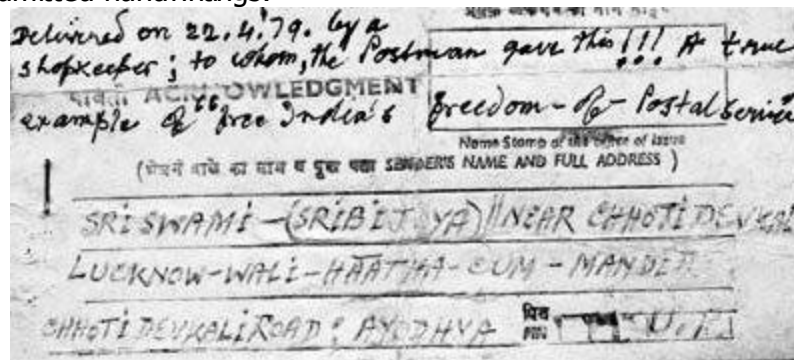 admitted handwritings.
Delivered on 22.4.'79. by a
shopkeeper; to whom, the Postman gave this!!! A true
पावती ACKNOWLEDGMENT
example of "free India's freedom-of-Postal service
Name Stamp of the office of Issue
(भेजने वाले का नाम व पूरा पता SENDER'S NAME AND FULL ADDRESS)
SRI SWAMI-(SRIBIJOYA)//NEAR CHHOTI DEVKALI
LUCKNOW-WALI-HAATHA-CUM-MANDIR
CHHOTI DEVKALI ROAD: AYODHYA पिन PIN U.P.